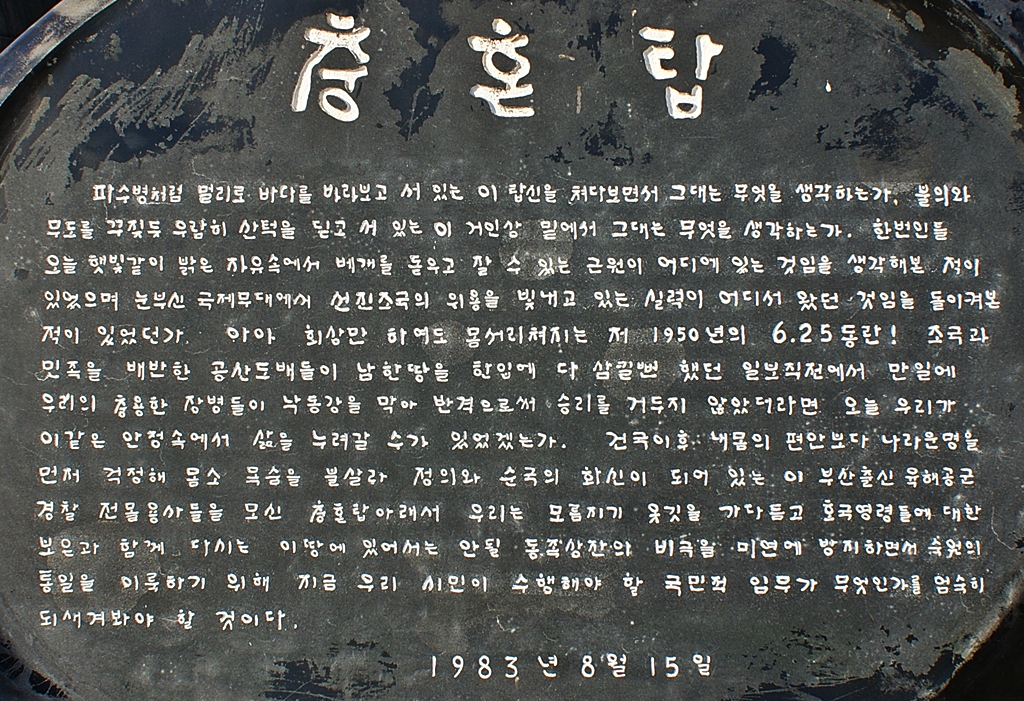 충혼탑
파수병처럼 멀리로 바다를 바라보고 서 있는 이 탑신을 쳐다보면서 그대는 무엇을 생각하는가, 불의와
무도를 꾸짖듯 우람히 산턱을 딛고 서 있는 이 거인상 밑에서 그대는 무엇을 생각하는가. 한번인들
오늘 햇빛같이 밝은 자유속에서 베개를 돋우고 잘 수 있는 근원이 어디에 있는 것임을 생각해본 적이
있었으며 눈부신 국제무대에서 선진조국의 위용을 빛내고 있는 실력이 어디서 왔던 것임을 돌이켜본
적이 있었던가. 아아 회상만 하여도 몸서리쳐지는 저 1950년의 6.25동란! 조국과
민족을 배반한 공산도배들이 남한땅을 한입에 다 삼킬뻔 했던 일보직전에서 만일에
우리의 충용한 장병들이 낙동강을 막아 반격으로써 승리를 거두지 않았더라면 오늘 우리가
이같은 안정속에서 삶을 누려갈 수가 있었겠는가. 건국이후 내몸의 편안보다 나라운명을
먼저 걱정해 몸소 목숨을 불살라 정의와 순국의 화신이 되어 있는 이 부산출신 육해공군
경찰 전몰용사들을 모신 충혼탑아래서 우리는 모름지기 옷깃을 가다듬고 호국영령들에 대한
보은과 함께 다시는 이땅에 있어서는 안될 동족상잔의 비극을 미연에 방지하면서 숙원의
통일을 이룩하기 위해 지금 우리 시민이 수행해야 할 국민적 임무가 무엇인가를 엄숙히
되새겨봐야 할 것이다.
1983년 8월 15일